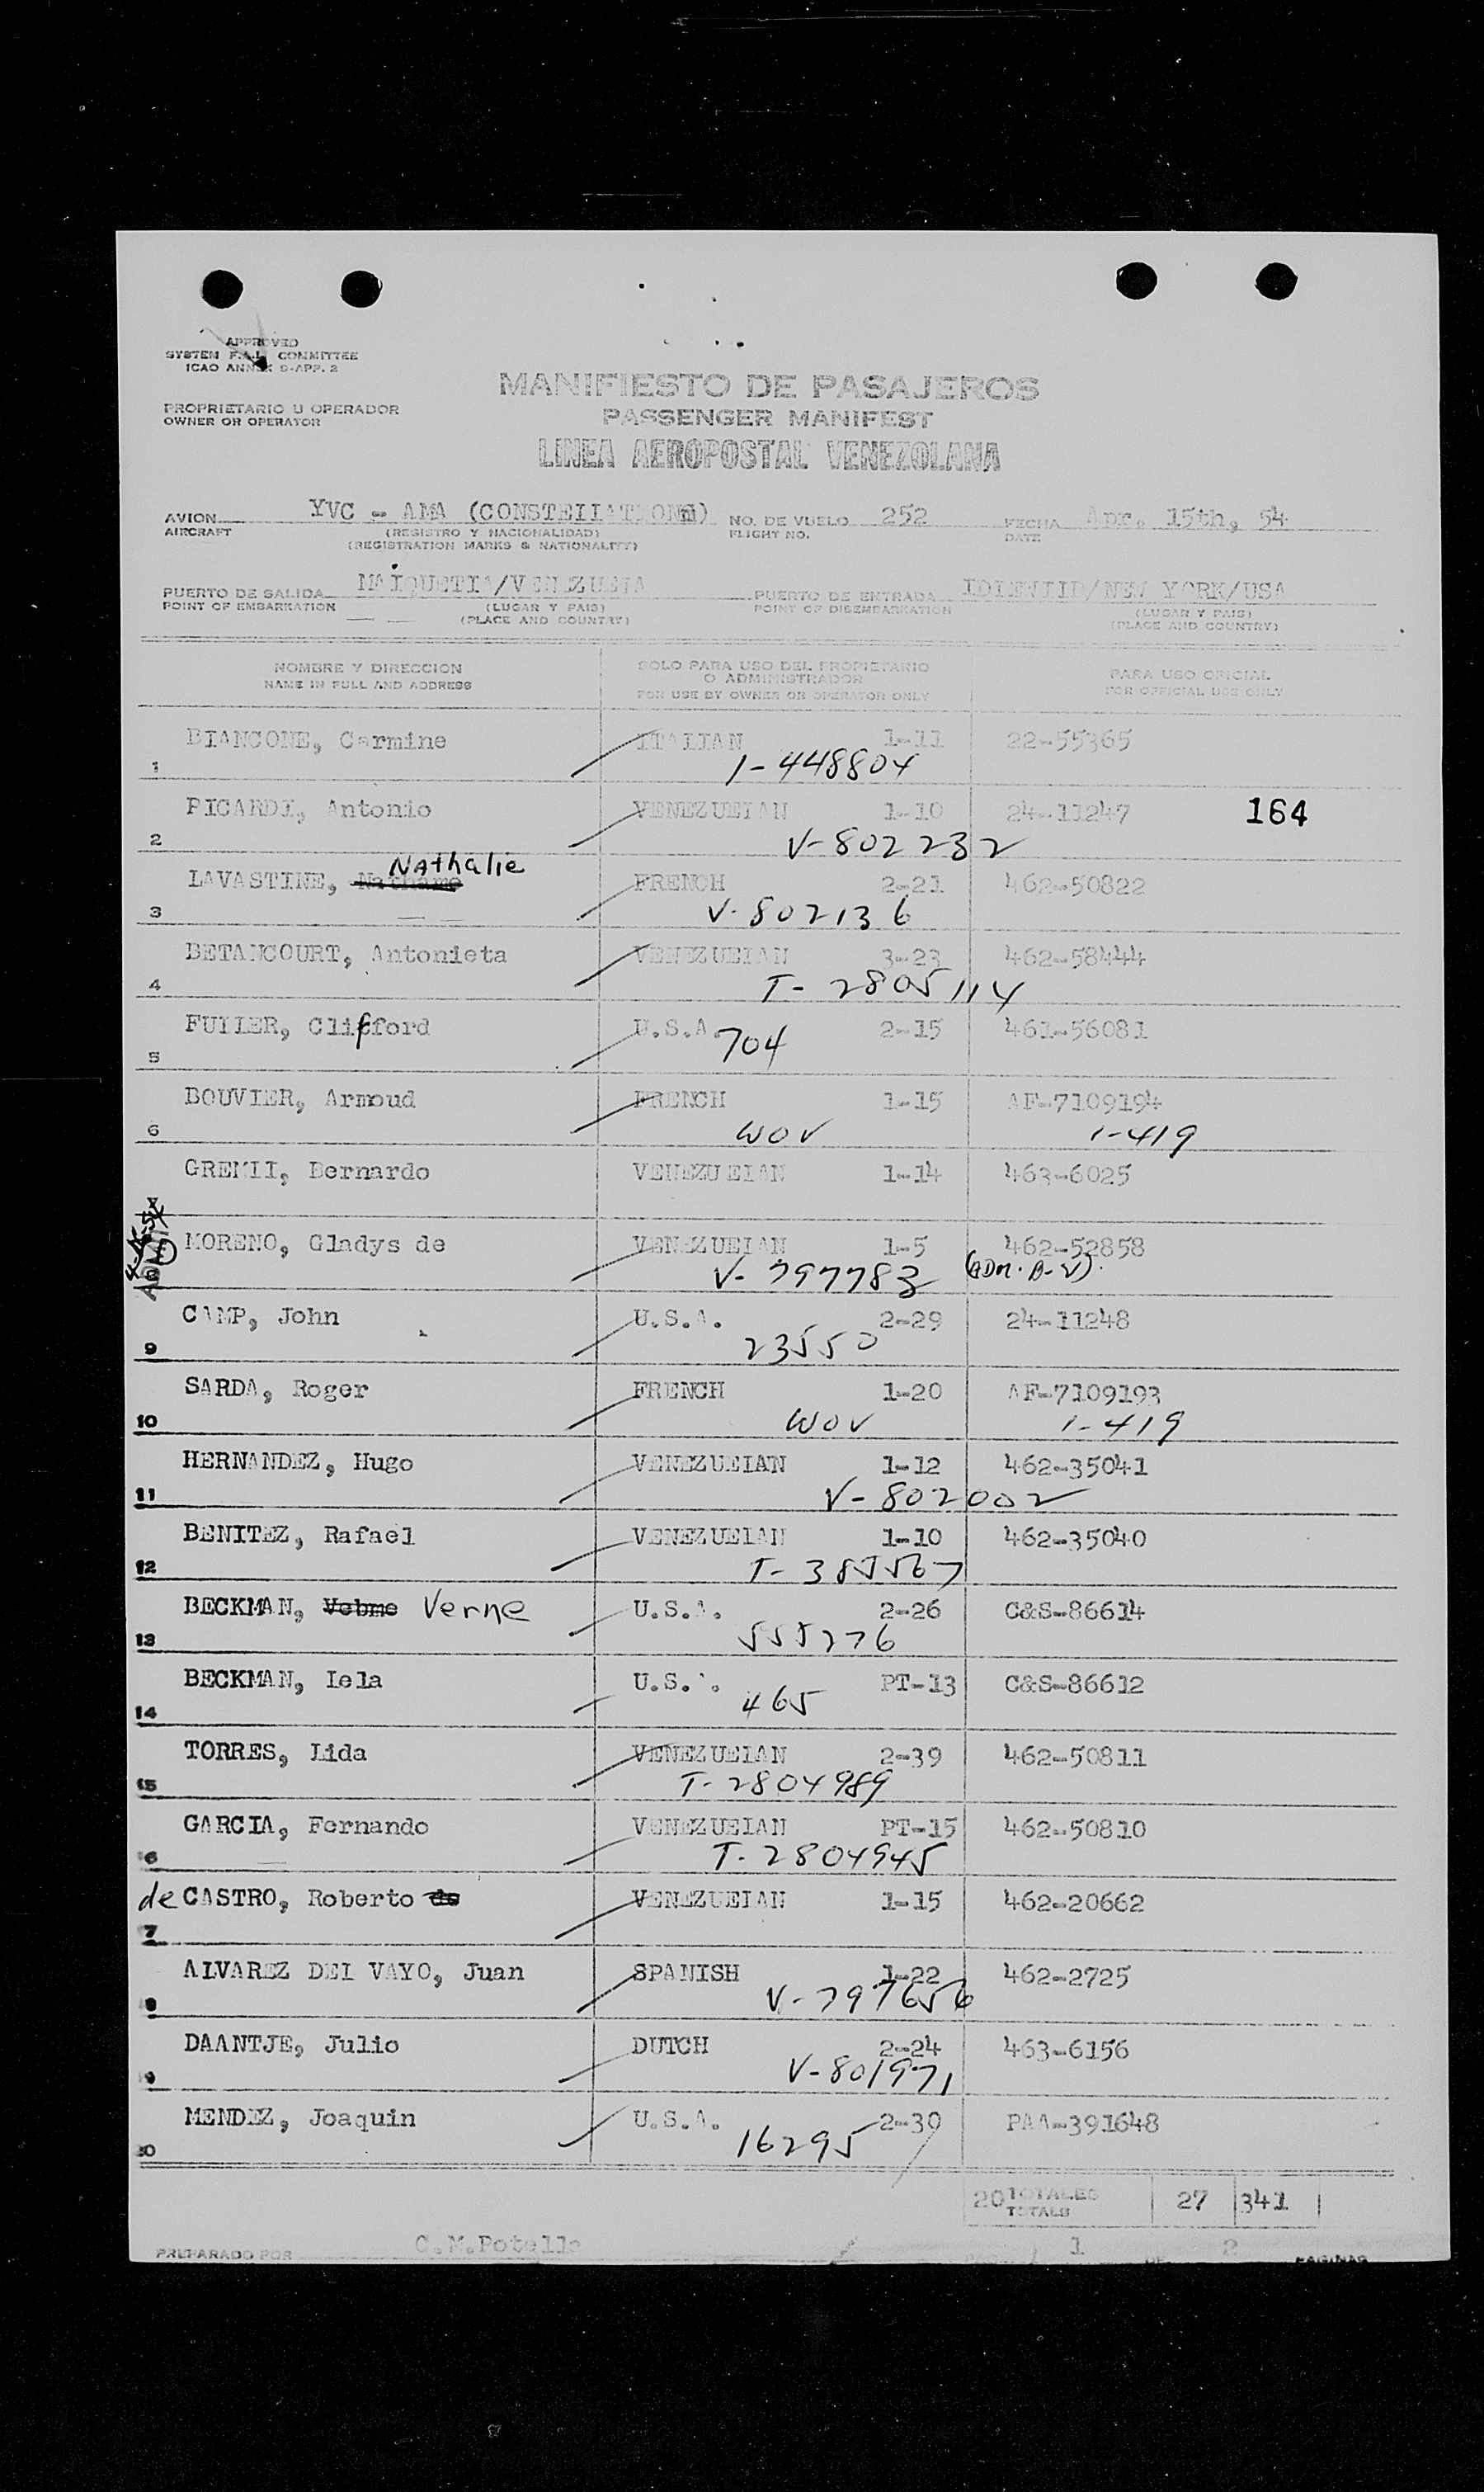 APPROVED
SYSTEM F.A.L. COMMITTEE
ICAO ANNEX 9-APP. 2
MANIFIESTO DE PASAJEROS
PROPRIETARIO U OPERADOR
OWNER OR OPERATOR
PASSENGER MANIFEST
LINEA AEROPOSTAL VENEZOLANA
AVION YVC - AMA (CONSTEIIATIONn) NO. DE VUELO 252 FECHA Apr. 15th, 54
AIRCRAFT (REGISTRO Y NACIONALIDAD) FLIGHT NO. DATE
(REGISTRATION MARKS & NATIONALITY)
PUERTO DE SALIDA MAIQUETIA/VENEZUEIA PUERTO DE ENTRADA IDIEWIID/NEW YORK/USA
POINT OF EMBARKATION (LUGAR Y PAIS) POINT OF DISEMBARKATION (LUGAR Y PAIS)
(PLACE AND COUNTRY) (PLACE AND COUNTRY)
NOMBRE Y DIRECCION SOLO PARA USO DEL PROPIETARIO O ADMINISTRADOR PARA USO OFICIAL
NAME IN FULL AND ADDRESS FOR USE BY OWNER OR OPERATOR ONLY FOR OFFICIAL USE ONLY
BIANCONE, Carmine ITAIIAN 1-11 22-55365
1 1-448804
PICARDI, Antonio VENEZUEIAN 1-10 24-11247 164
2 V-802232
Nathalie
IAVASTINE, FRENCH 2-21 462-50822
3 V-802136
BETANCOURT, Antonieta VENEZUEIAN 3-23 462-58444
4 T-2805114
FUIIER, Clifford U.S.A. 2-15 461-56081
5 704
BOUVIER, Armoud FRENCH 1-15 AF-7109194
6 WOV 1-419
GREMII, Bernardo VENEZUEIAN 1-14 463-6025
MORENO, Gladys de VENEZUEIAN 1-5 462-52858
V-797783 (ADM. B-2)
CAMP, John U.S.A. 2-29 24-11248
9 23550
SARDA, Roger FRENCH 1-20 AF-7109193
10 WOV 1-419
HERNANDEZ, Hugo VENEZUEIAN 1-12 462-35041
11 V-802002
BENITEZ, Rafael VENEZUEIAN 1-10 462-35040
12 T-385567
BECKMAN, Vebme Verne U.S.A. 2-26 C&S-86614
13 555276
BECKMAN, Iela U.S.A. PT-13 C&S-86612
14 465
TORRES, Iida VENEZUEIAN 2-39 462-50811
15 T-2804989
GARCIA, Fernando VENEZUEIAN PT-15 462-50810
6 T-2804945
de CASTRO, Roberto de VENEZUEIAN 1-15 462-20662
7
AIVAREZ DEI VAYO, Juan SPANISH 1-22 462-2725
8 V-797656
DAANTJE, Julio DUTCH 2-24 463-6156
9 V-801971
MENDEZ, Joaquin U.S.A. 2-30 PAA-391648
20 16295
20 TOTALES 27 341
TOTALS
PREPARADO POR C.M.Potella 1 DE 2 PAGINAS